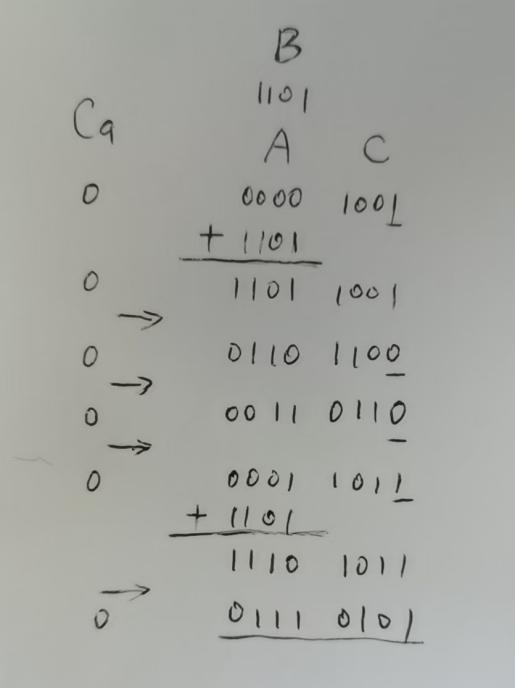 B
1101
Ca A C
0 0000 1001
+ 1101
0 1101 1001
→
0 0110 1100
→
0 0011 0110
→
0 0001 1011
+ 1101
1110 1011
→
0 0111 0101